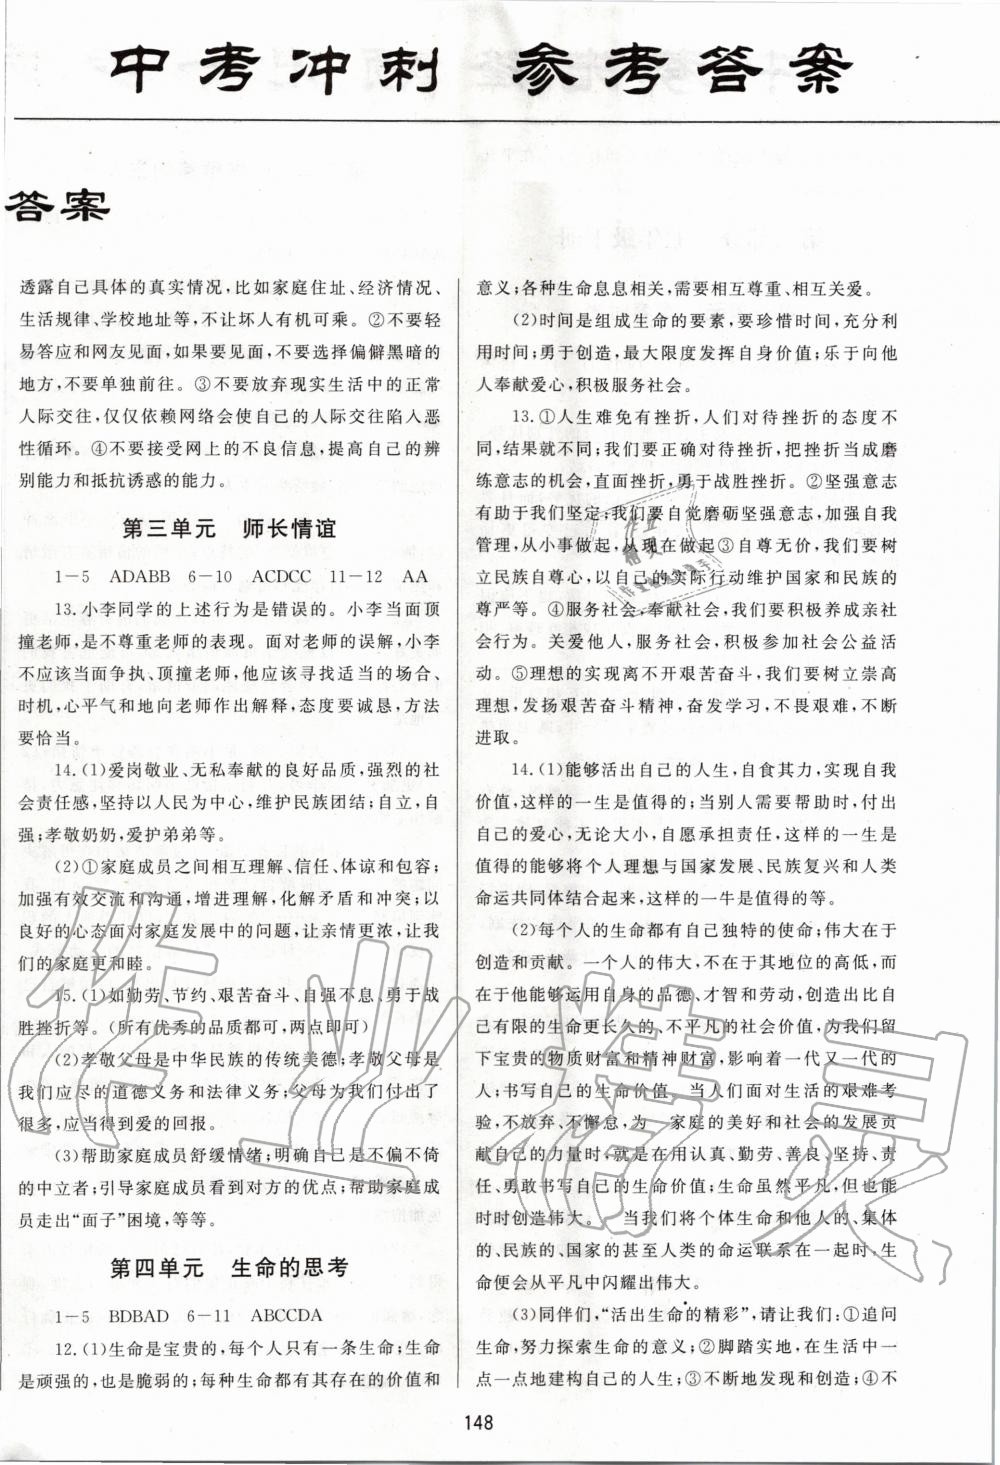 中考冲刺 参考答案
答案
透露自己具体的真实情况,比如家庭住址、经济情况、
生活规律、学校地址等,不让坏人有机可乘。②不要轻
易答应和网友见面,如果要见面,不要选择偏僻黑暗的
地方,不要单独前往。③不要放弃现实生活中的正常
人际交往,仅仅依赖网络会使自己的人际交往陷入恶
性循环。④不要接受网上的不良信息,提高自己的辨
别能力和抵抗诱惑的能力。
第三单元 师长情谊
1-5 ADABB 6-10 ACDCC 11-12 AA
13.小李同学的上述行为是错误的。小李当面顶
撞老师,是不尊重老师的表现。面对老师的误解,小李
不应该当面争执、顶撞老师,他应该寻找适当的场合、
时机,心平气和地向老师作出解释,态度要诚恳,方法
要恰当。
14.(1)爱岗敬业、无私奉献的良好品质,强烈的社
会责任感,坚持以人民为中心,维护民族团结;自立,自
强;孝敬奶奶,爱护弟弟等。
(2)①家庭成员之间相互理解、信任、体谅和包容;
加强有效交流和沟通,增进理解,化解矛盾和冲突;以
良好的心态面对家庭发展中的问题,让亲情更浓,让我
们的家庭更和睦。
15.(1)如勤劳、节约、艰苦奋斗、自强不息、勇于战
胜挫折等。(所有优秀的品质都可,两点即可)
(2)孝敬父母是中华民族的传统美德;孝敬父母是
我们应尽的道德义务和法律义务;父母为我们付出了
很多,应当得到爱的回报。
(3)帮助家庭成员舒缓情绪;明确自己是不偏不倚
的中立者;引导家庭成员看到对方的优点;帮助家庭成
员走出“面子”困境,等等。
第四单元 生命的思考
1-5 BDBAD 6-11 ABCCDA
12.(1)生命是宝贵的,每个人只有一条生命;生命
是顽强的,也是脆弱的;每种生命都有其存在的价值和
意义;各种生命息息相关,需要相互尊重、相互关爱。
(2)时间是组成生命的要素,要珍惜时间,充分利
用时间;勇于创造,最大限度发挥自身价值;乐于向他
人奉献爱心,积极服务社会。
13.①人生难免有挫折,人们对待挫折的态度不
同,结果就不同;我们要正确对待挫折,把挫折当成磨
练意志的机会,直面挫折,勇于战胜挫折。②坚强意志
有助于我们坚定;我们要自觉磨砺坚强意志,加强自我
管理,从小事做起,从现在做起③自尊无价,我们要树
立民族自尊心,以自己的实际行动维护国家和民族的
尊严等。④服务社会,奉献社会,我们要积极养成亲社
会行为。关爱他人,服务社会,积极参加社会公益活
动。⑤理想的实现离不开艰苦奋斗,我们要树立崇高
理想,发扬艰苦奋斗精神,奋发学习,不畏艰难,不断
进取。
14.(1)能够活出自己的人生,自食其力,实现自我
价值,这样的一生是值得的;当别人需要帮助时,付出
自己的爱心,无论大小,自愿承担责任,这样的一生是
值得的能够将个人理想与国家发展、民族复兴和人类
命运共同体结合起来,这样的一牛是值得的等。
(2)每个人的生命都有自己独特的使命;伟大在于
创造和贡献。一个人的伟大,不在于其地位的高低,而
在于他能够运用自身的品德、才智和劳动,创造出比自
己有限的生命更长久的、不平凡的社会价值,为我们留
下宝贵的物质财富和精神财富,影响着一代又一代的
人;书写自己的生命价值 当人们面对生活的艰难考
验,不放弃、不懈怠,为 家庭的美好和社会的发展贡
献自己的力量时,就是在用认真、勤劳、善良、坚持、责
任、勇敢书写自己的生命价值;生命虽然平凡,但也能
时时创造伟大。 当我们将个体生命和他人的、集体
的、民族的、国家的甚至人类的命运联系在一起时,生
命便会从平凡中闪耀出伟大。
(3)同伴们,“活出生命的精彩”,请让我们:①追问
生命,努力探索生命的意义;②脚踏实地,在生活中一
点一点地建构自己的人生;③不断地发现和创造;④不
148
作业精灵